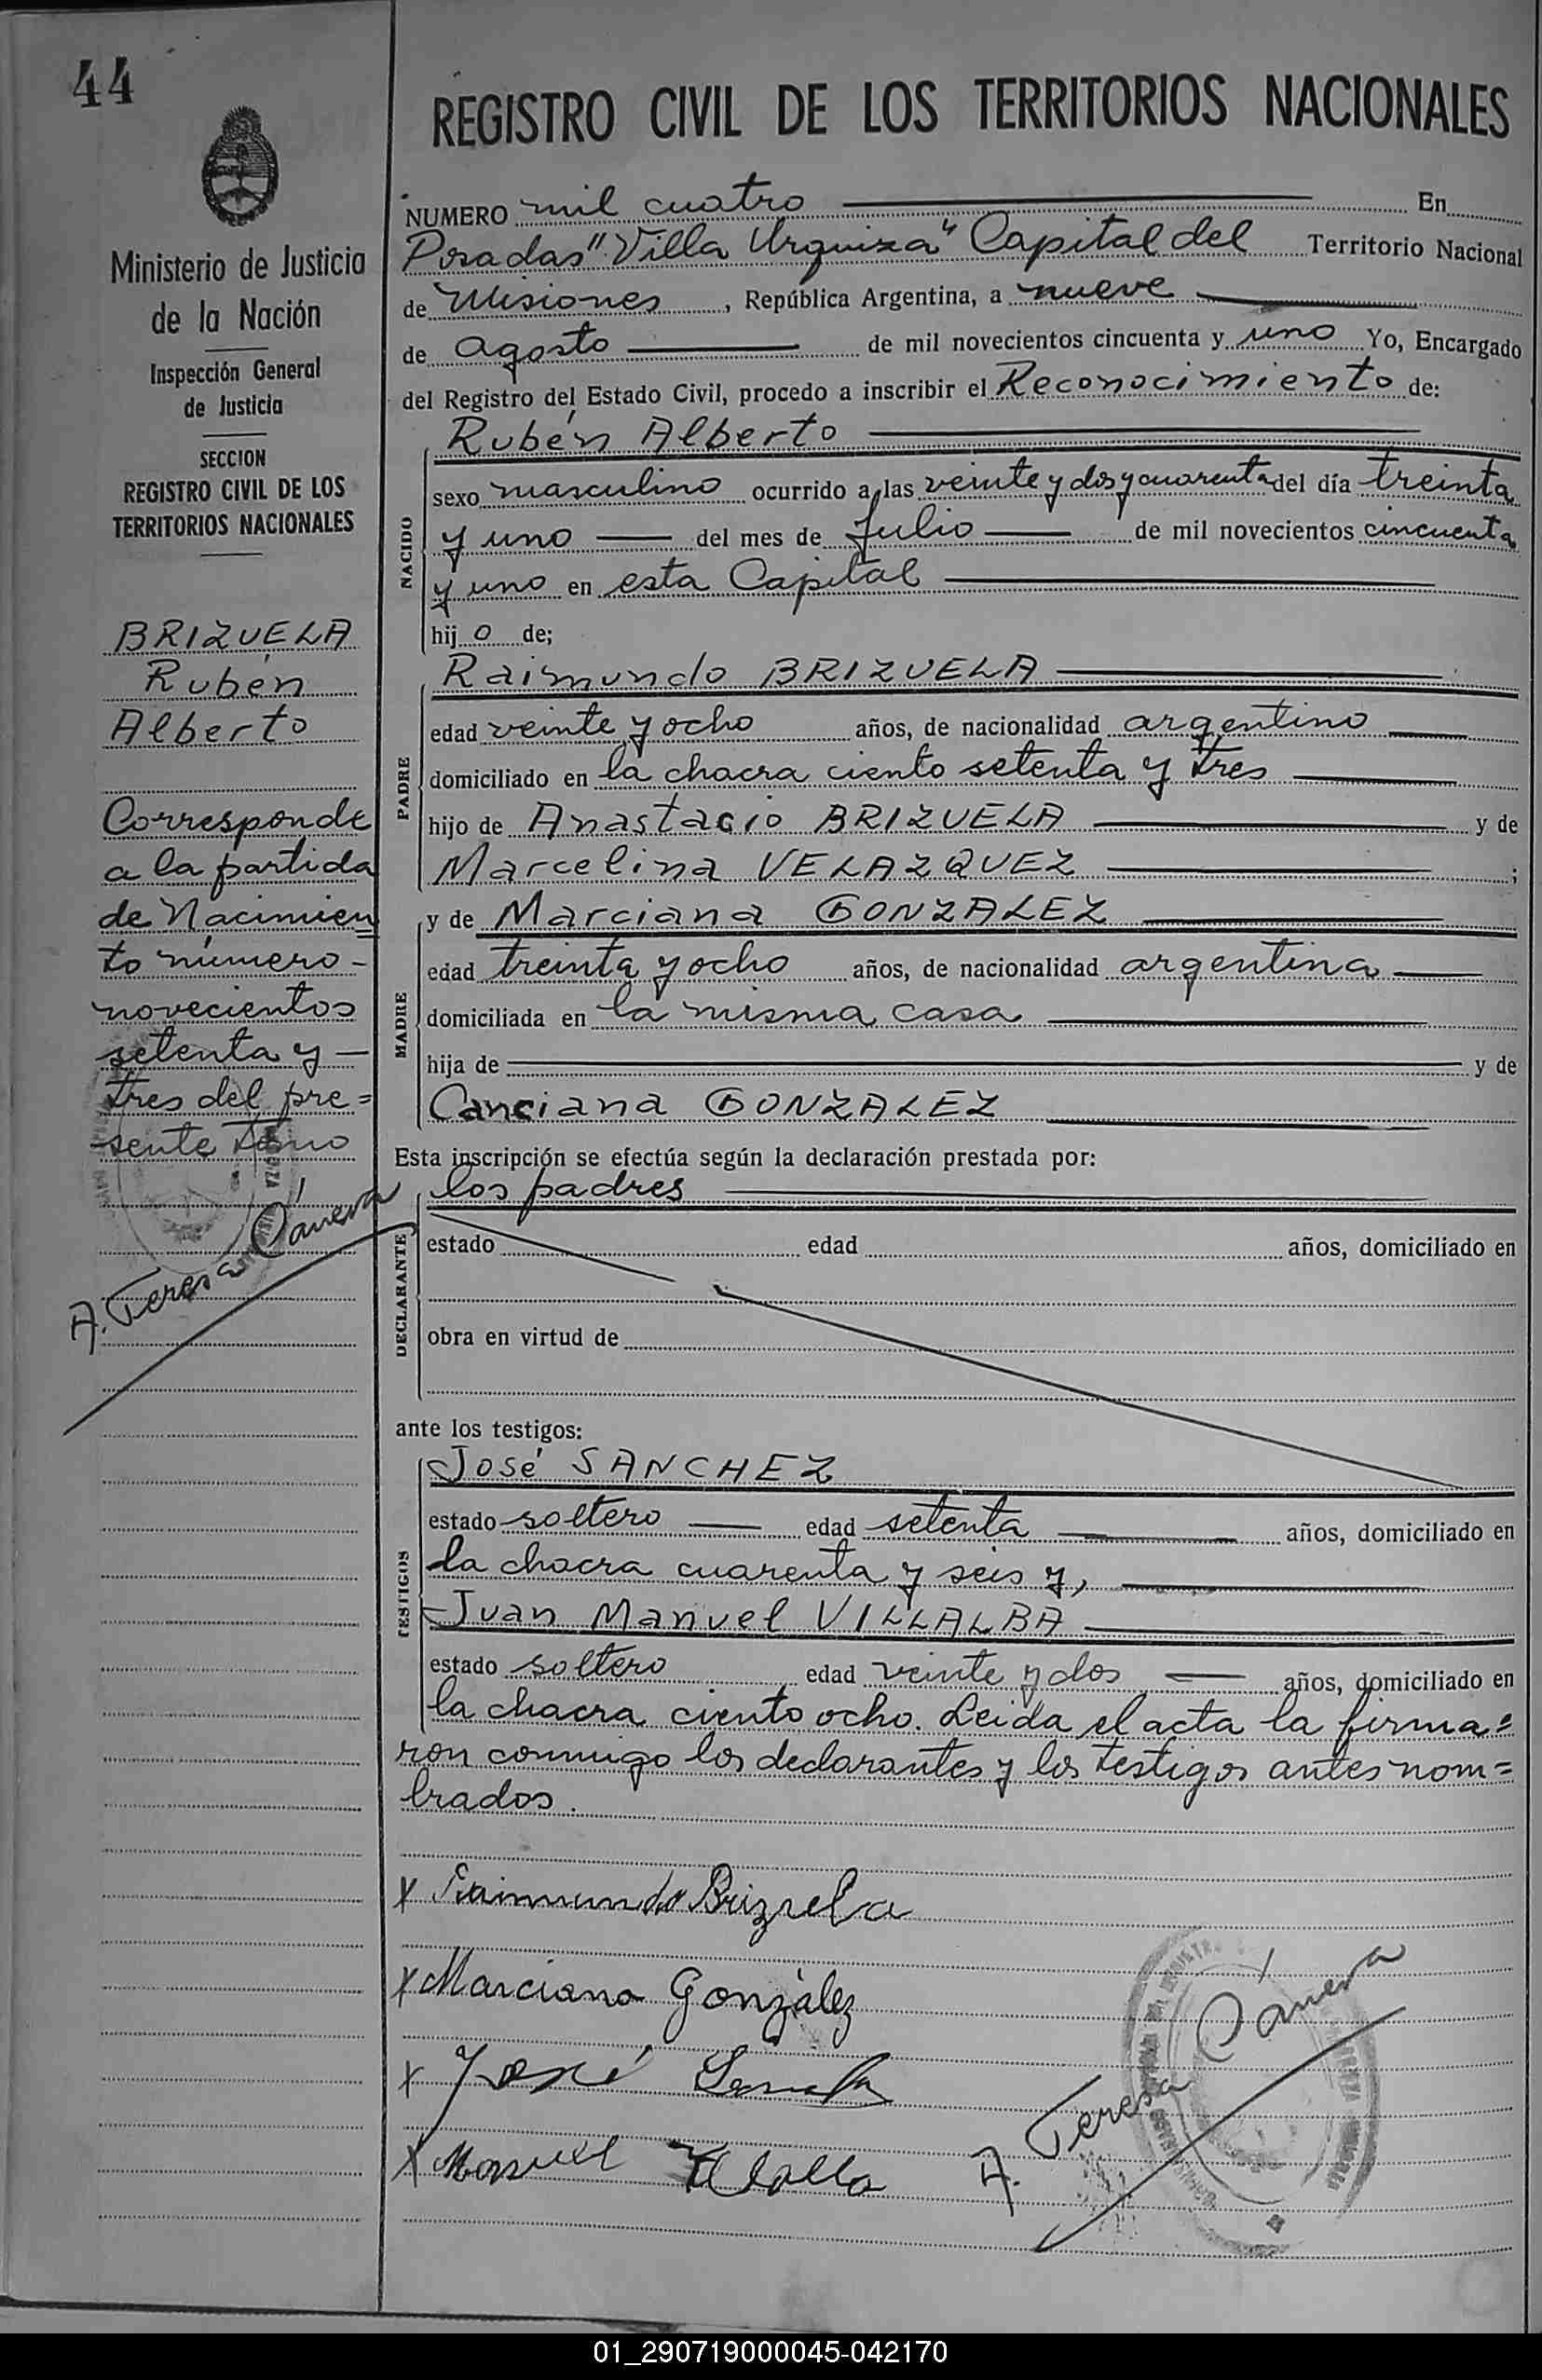 44
REGISTRO CIVIL DE LOS TERRITORIOS NACIONALES
Ministerio de Justicia
de la Nación
Inspección General
de Justicia
SECCION
REGISTRO CIVIL DE LOS
TERRITORIOS NACIONALES
BRIZUELA
Rubén
Alberto
Corresponde
a la partida
de Nacimien
to número -
novecientos
setenta y -
tres del pre=
sente tomo
A. Teresa Cánera
NUMERO mil cuatro En
Posadas "Villa Urquiza" Capital del Territorio Nacional
de Misiones, República Argentina, a nueve
de agosto de mil novecientos cincuenta y uno Yo, Encargado
del Registro del Estado Civil, procedo a inscribir el Reconocimiento de:
Rubén Alberto
NACIDO
sexo masculino ocurrido a las veinte y dos y cuarenta del día treinta
y uno del mes de Julio de mil novecientos cincuenta
y uno en esta Capital
hijo de;
Raimundo BRIZUELA
PADRE
edad veinte y ocho años, de nacionalidad argentino
domiciliado en la chacra ciento setenta y tres
hijo de Anastacio BRIZUELA y de
Marcelina VELAZQUEZ ;
y de Marciana GONZALEZ
MADRE
edad treinta y ocho años, de nacionalidad argentina
domiciliada en la misma casa
hija de y de
Canciana GONZALEZ
Esta inscripción se efectúa según la declaración prestada por:
los padres
DECLARANTE
estado edad años, domiciliado en
obra en virtud de
ante los testigos:
José SANCHEZ
TESTIGOS
estado soltero edad setenta años, domiciliado en
la chacra cuarenta y seis y,
Juan Manuel VILLALBA
estado soltero edad veinte y dos años, domiciliado en
la chacra ciento ocho. Leida el acta la firma=
ron conmigo los declarantes y los testigos antes nom=
brados.
x Raimundo Brizuela
x Marciana González
x José
x Manuel
A. Teresa Cánera
01_290719000045-042170